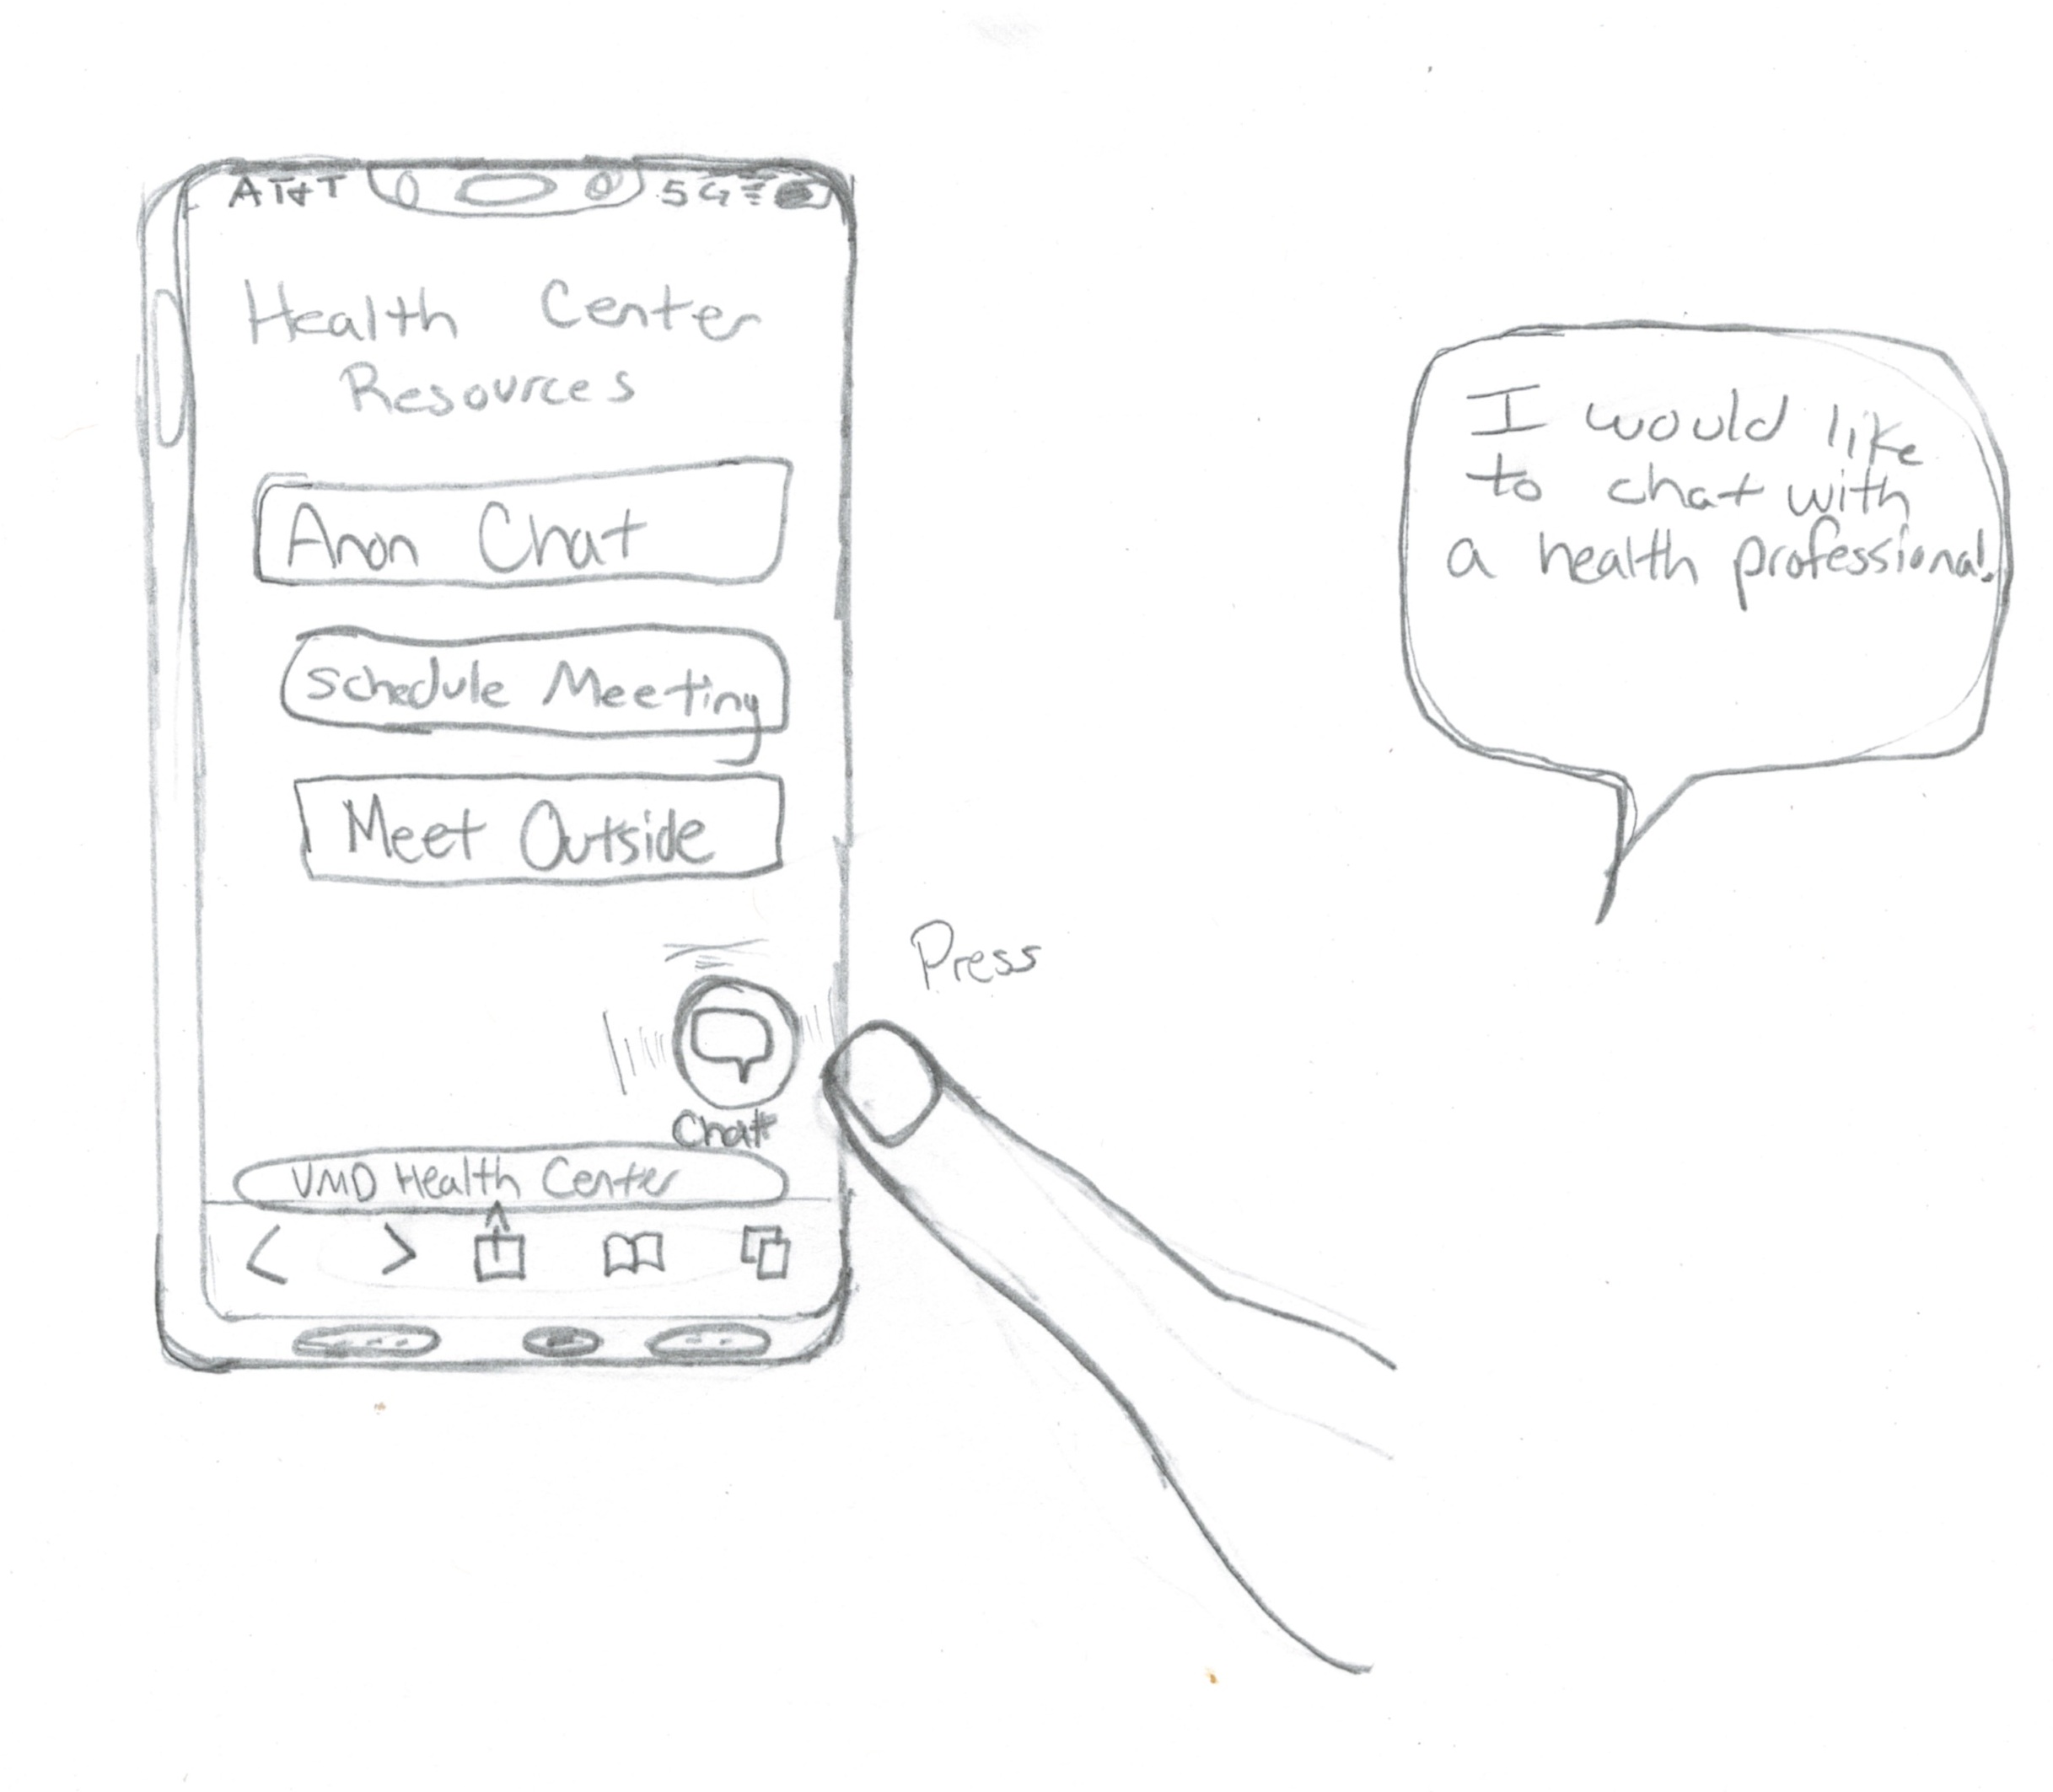 AT&T 5G
Health Center
Resources
Anon Chat
Schedule Meeting
Meet Outside
Chat
UMD Health Center
Press
I would like
to chat with
a health professional.